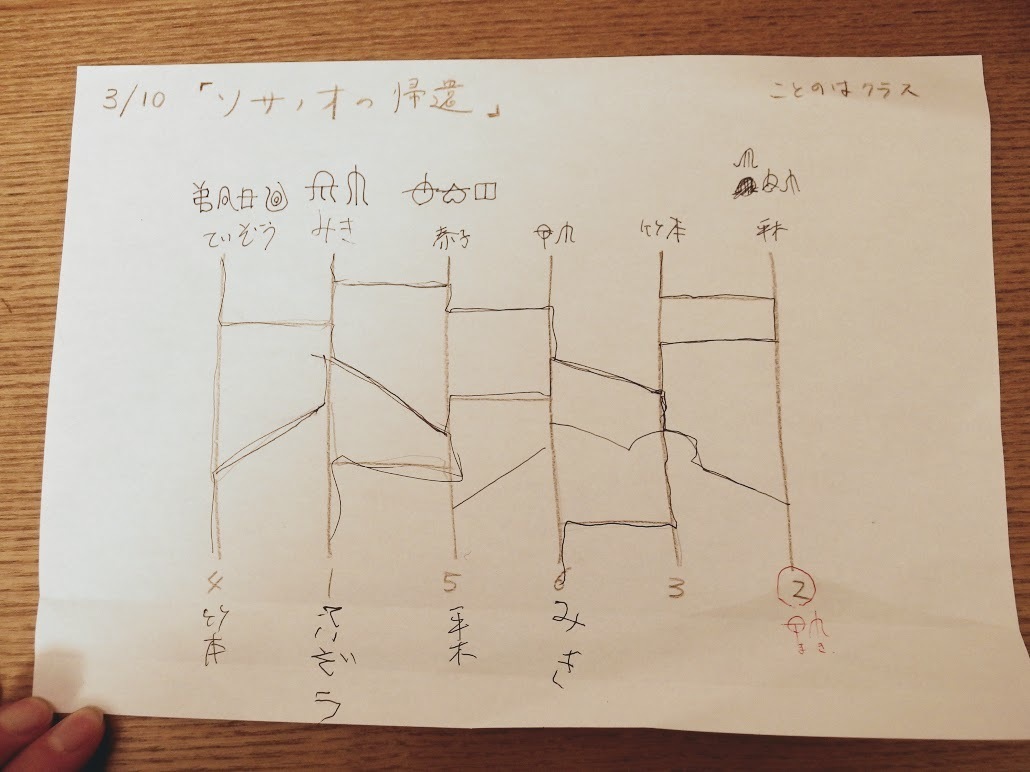 3/10 「ソサノオの帰還」
ことのはクラス
ていぞう みき 恭子 竹本 平木
4 1 5 6 3 2
竹本 ていぞう 平木 みき まき